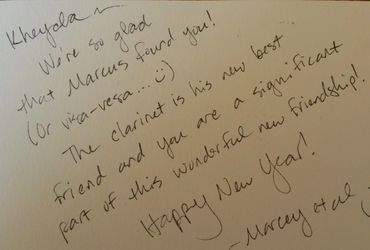 Kheyala ~
We're so glad
that Marcus found you!
(Or visa-vesa... :)
The clarinet is his new best
friend and you are a significant
part of this wonderful new friendship!
Happy New Year!
- Marcey et al